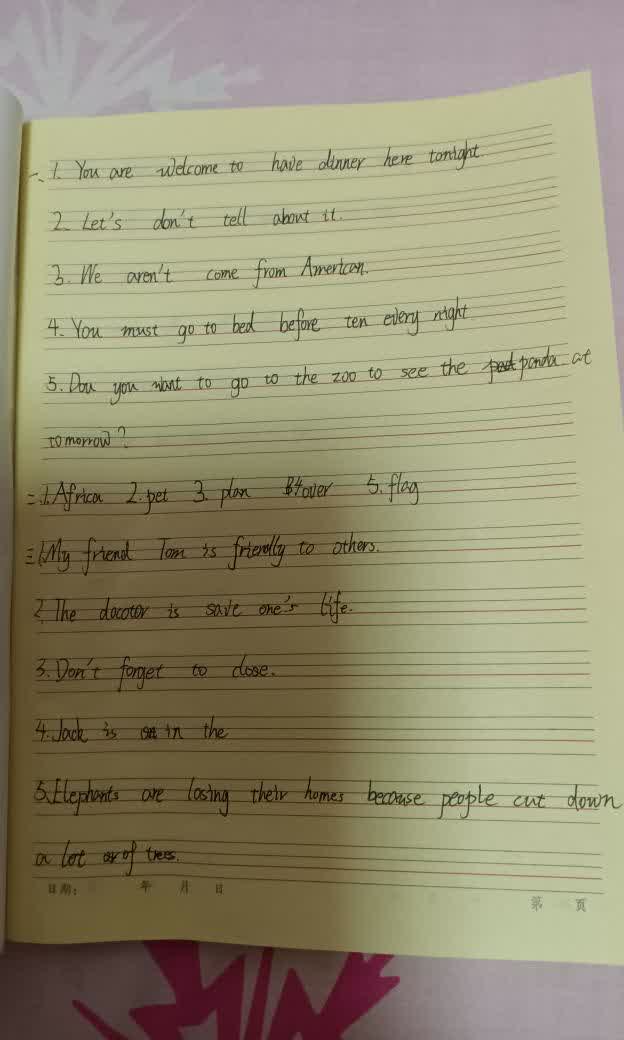 一、1. You are welcome to have dinner here tonight.
2. Let's don't tell about it.
3. We aren't come from American.
4. You must go to bed before ten every night
5. Dou you want to go to the zoo to see the panda at
tomorrow?
二、1. Africa 2. pet 3. plan 4 over 5. flag
三、1. My friend Tom is friendly to others.
2. The docotor is save one's life.
3. Don't forget to close.
4. Jack is in the
5. Elephants are losing their homes because people cut down
a lot of trees.
日期: 年 月 日
第 页